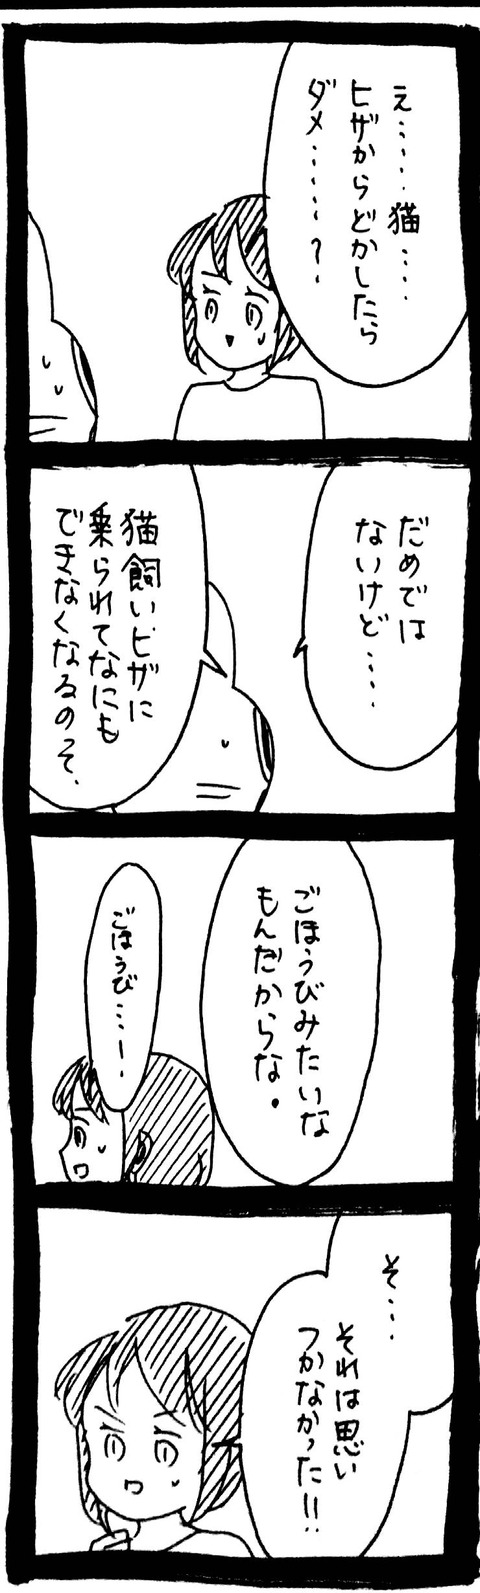 え……猫……
ヒザからどかしたら
ダメ……？
だめでは
ないけど……
猫飼いヒザに
乗られてなにも
できなくなるのそ、
ごほうびみたいな
もんだからな。
ごほうび…ー！
そ…
それは思い
つかなかった!!